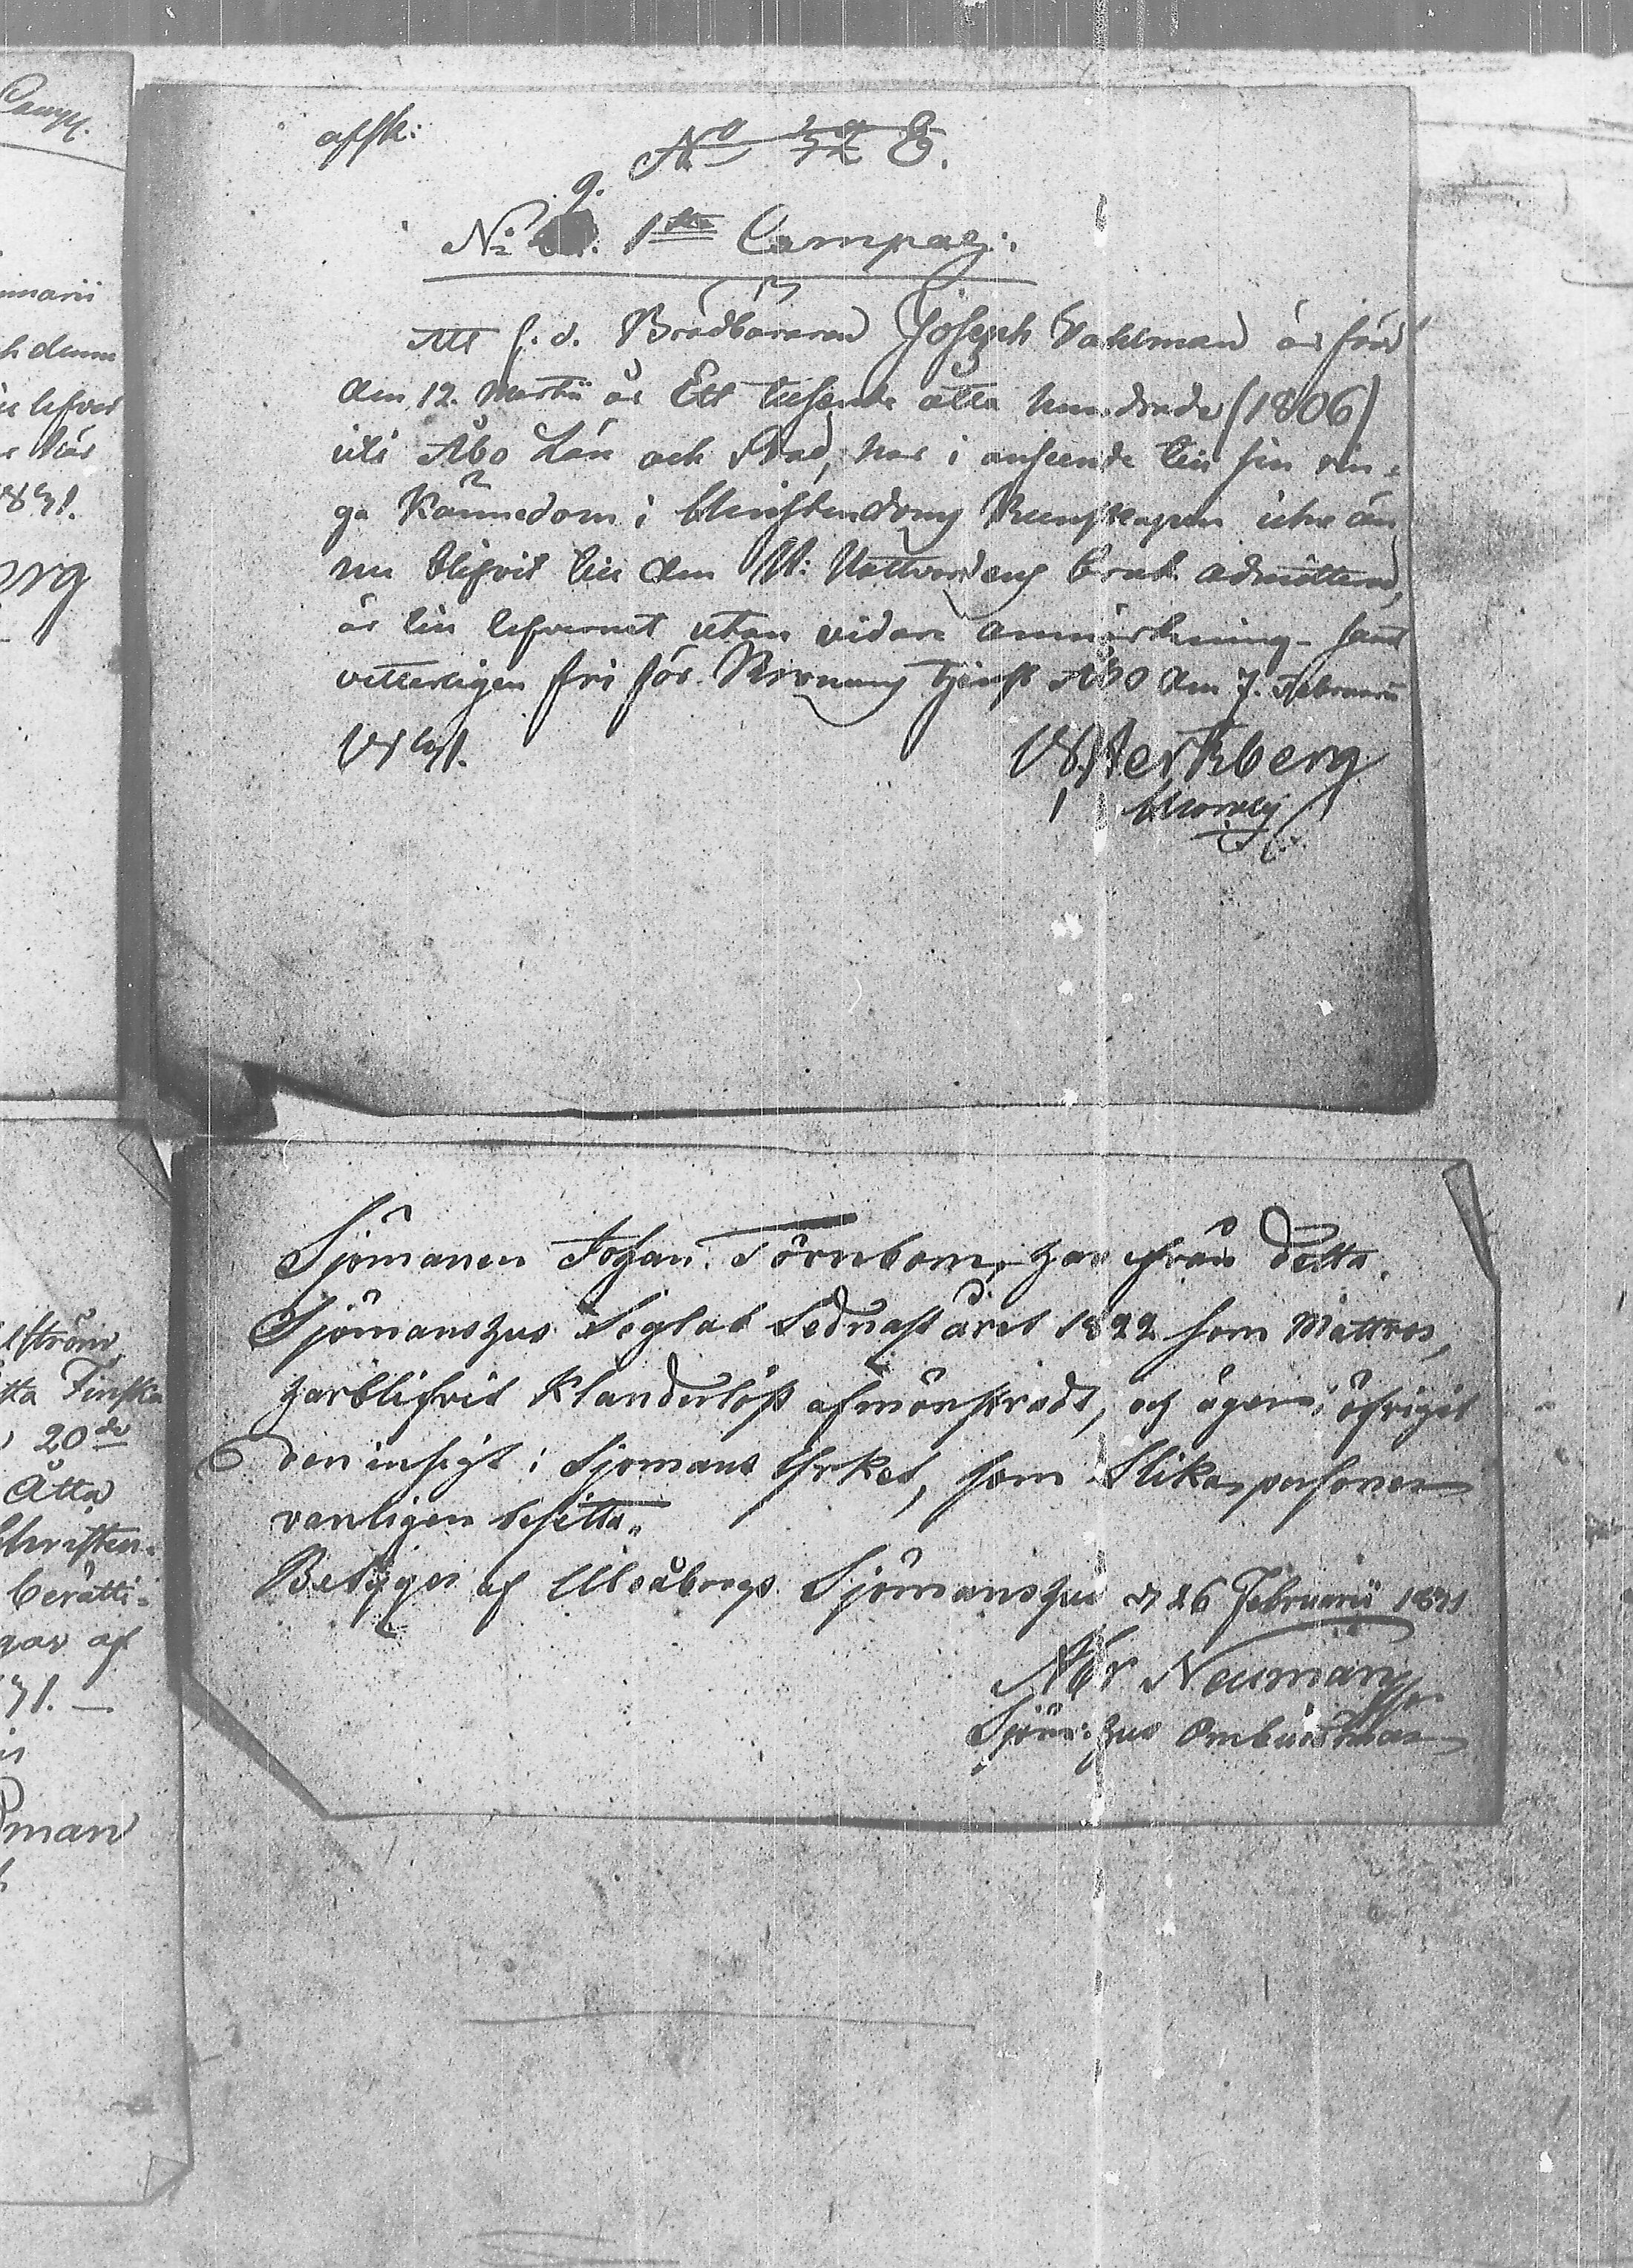 Camp:
afsk:
No 52 E.
9.
No 1sta Compag:
Att f. d. Brädbäraren Joseph Dahlman är född
den 12 Martii år Ett tusende åtta hundrade (1806)
uti Åbo Län och Stad, har i anseende till sin rin-
ga Kännedom i Christendoms Kunskapen icke än
nu blifvit till den H: Nattvardens bruk admitterad,
är till lefvernet utan vidare anmärkning samt
vetterligen fri för Kronans tjenst Åbo den 7. Februarii
1831.
Sterkberg
Sjömannen Johan Törnbom, har ifrån detta
Sjömanshus Seglat Sednast året 1822 som Mattros,
har blifvit Klanderlöst afmönstradt, och äger i öfrigit
den insigt i Sjömans Yrket, som Slika personer
vanligen besitta.
Betygar af Uleåborgs Sjömanshus d 26 Februarii 1831
Abr Neuman
Sjöm: hus Ombudsman
marii
denna
lefver
här
1831.
org
ström
tta Finska
20de
Åtta
Christen-
berätti-
gar af
31. —
man